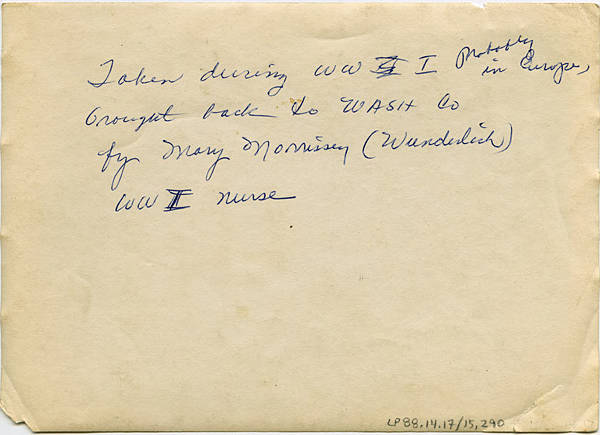 Taken during WW I Probably
in Europe,
Brought back to WASH Co
by Mary Morrissey (Wunderlich)
WW I nurse
LP88.14.17/15,290